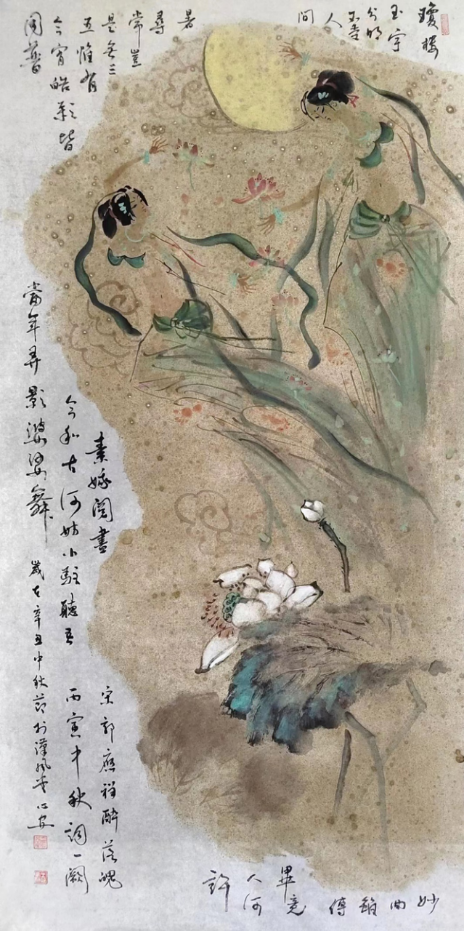 瓊樓
玉宇
分明
不受
人
間
暑
尋
常豈
是無三
五惟有
今宵皓彩皆
同普
素娥閱盡
今和古何妨小駐聽吾
當年弄影婆娑舞
妙曲雖傳
畢竟
人何
許
宋郭應祥醉落魄
丙寅中秋詞一闋
歲在辛丑中秋節於漢風堂